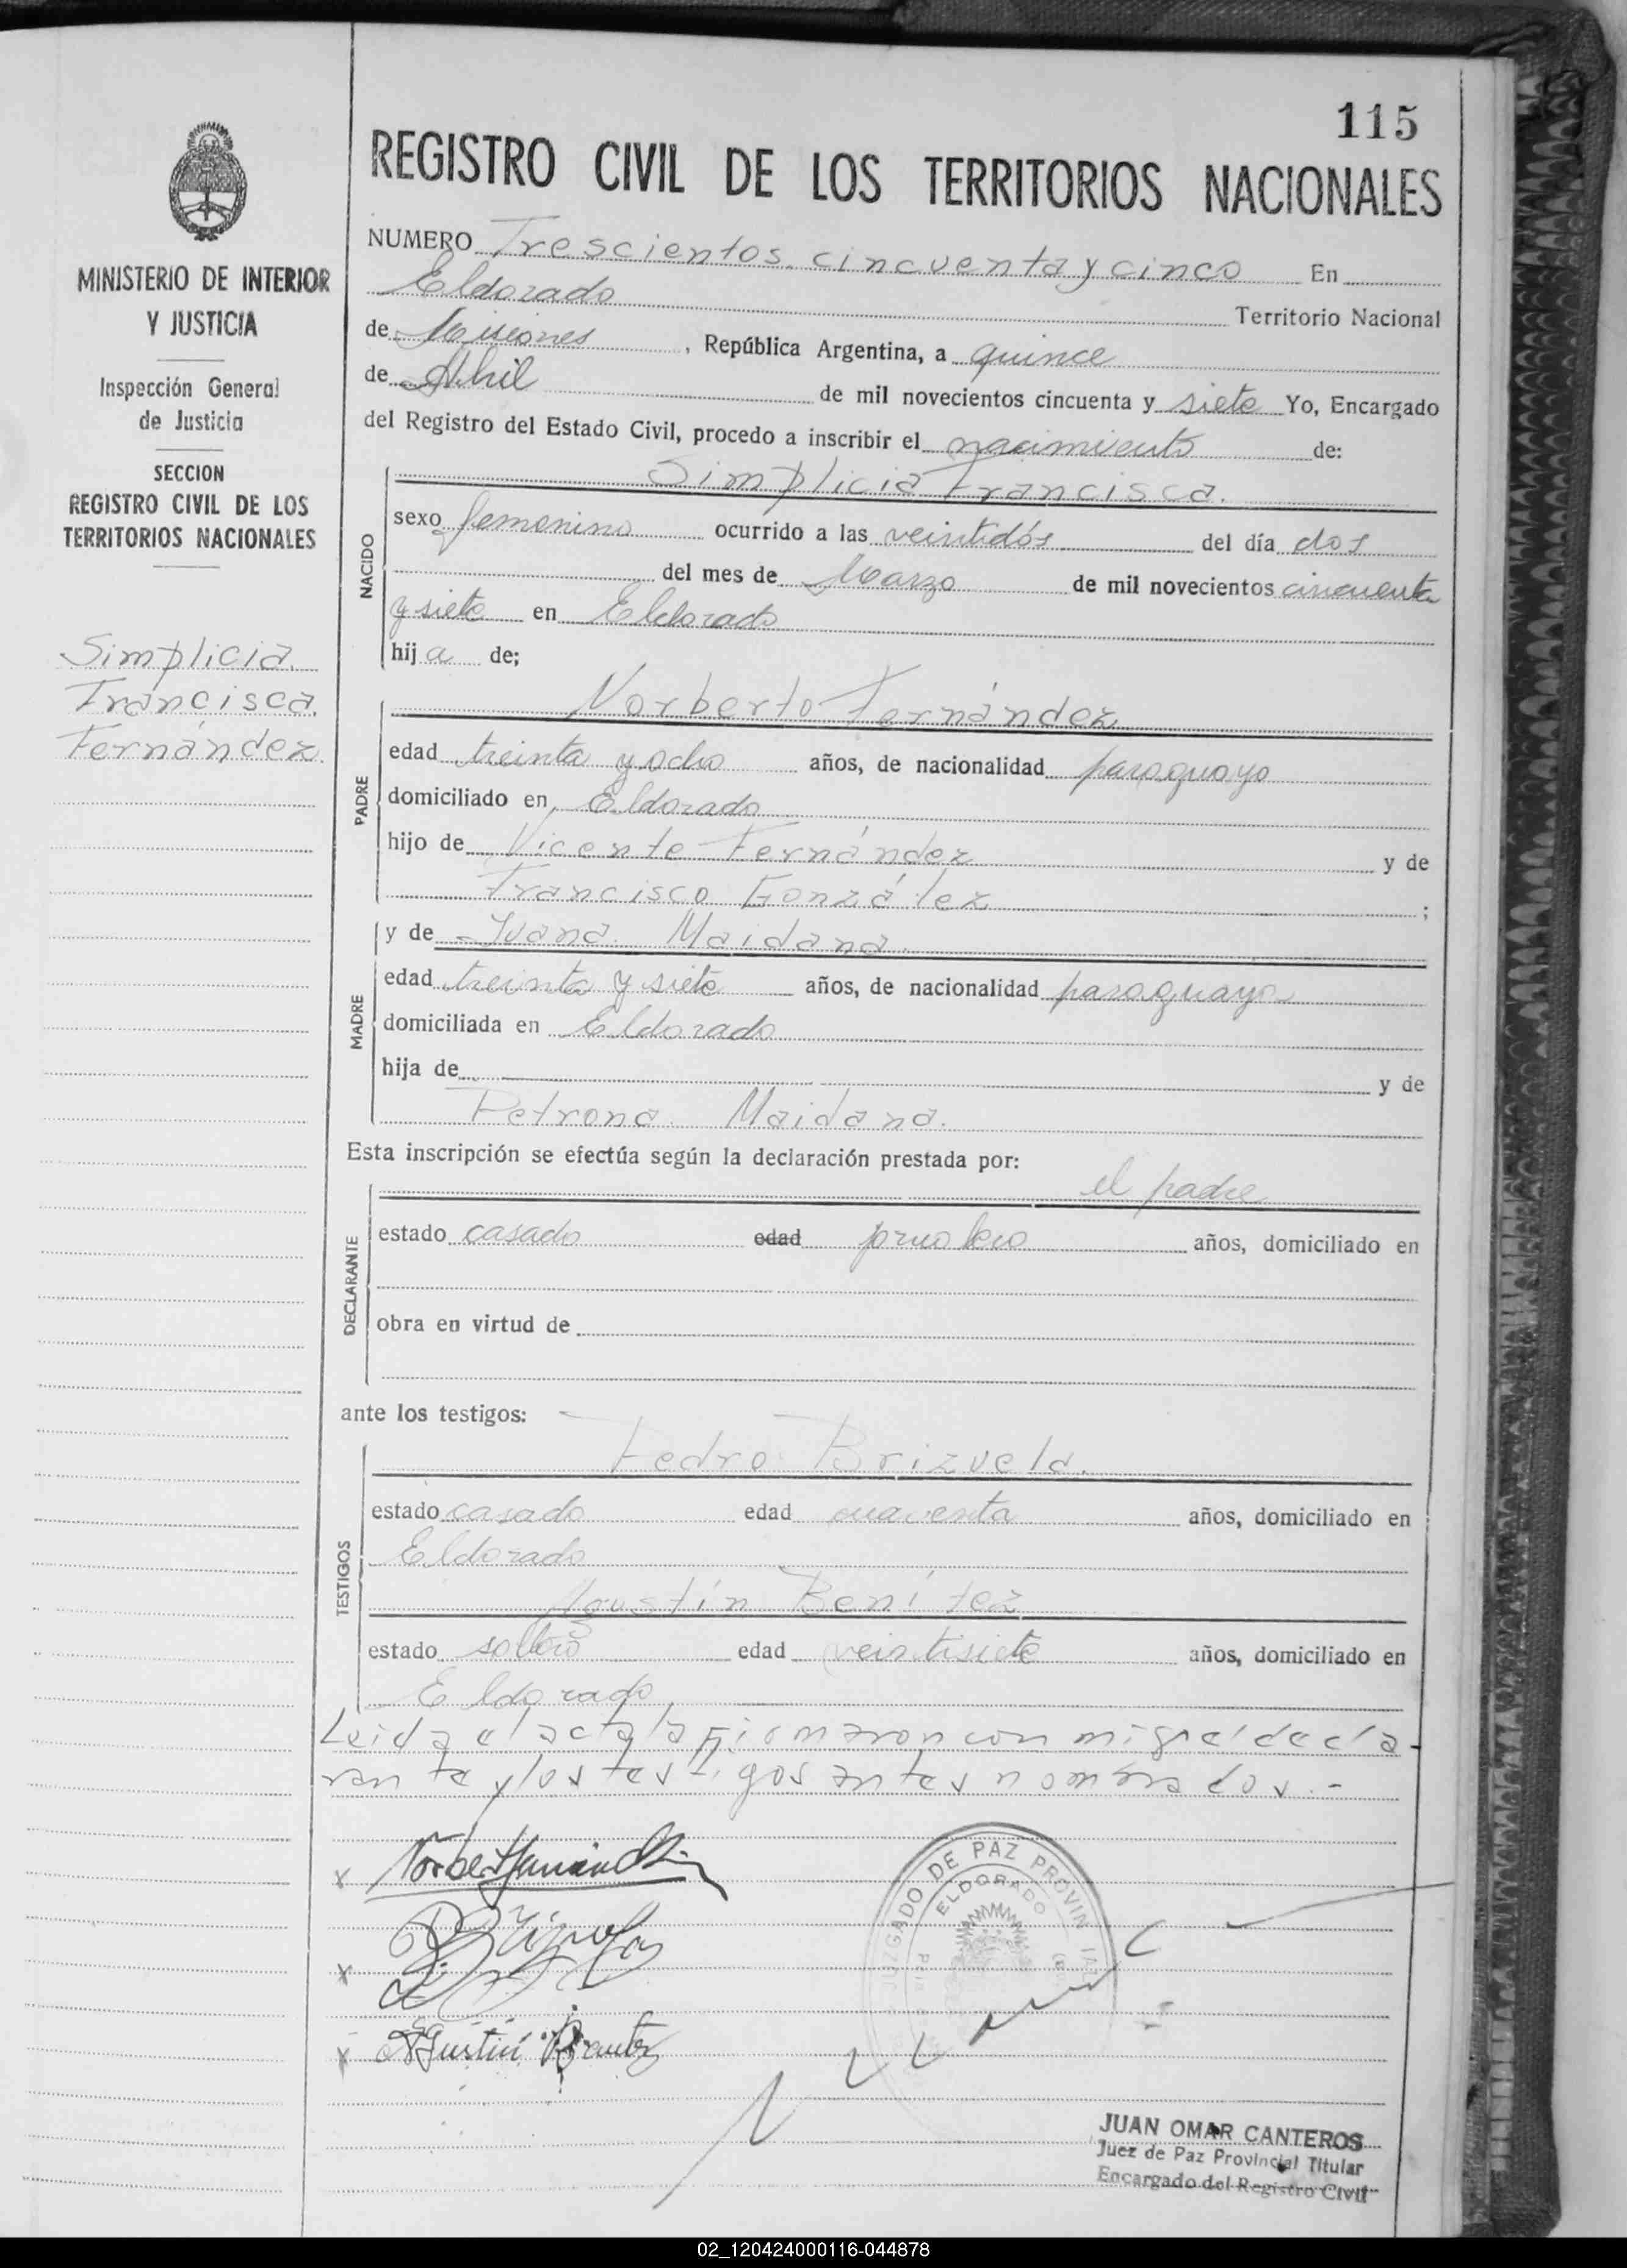 115
REGISTRO CIVIL DE LOS TERRITORIOS NACIONALES
MINISTERIO DE INTERIOR
Y JUSTICIA
Inspección General
de Justicia
SECCION
REGISTRO CIVIL DE LOS
TERRITORIOS NACIONALES
Simplicia
Francisca
Fernández
NUMERO Trescientos cincuenta y cinco En
Eldorado Territorio Nacional
de Misiones, República Argentina, a quince
de Abril de mil novecientos cincuenta y siete Yo, Encargado
del Registro del Estado Civil, procedo a inscribir el nacimiento de:
NACIDO
Simplicia Francisca.
sexo femenino ocurrido a las veintidós del día dos
del mes de Marzo de mil novecientos cincuenta
y siete en Eldorado
hija de;
PADRE
Norberto Fernández
edad treinta y ocho años, de nacionalidad paraguayo
domiciliado en Eldorado
hijo de Vicente Fernández y de
Francisco González ;
MADRE
y de Juana Maidana.
edad treinta y siete años, de nacionalidad paraguaya
domiciliada en Eldorado
hija de y de
Petrona Maidana.
Esta inscripción se efectúa según la declaración prestada por:
DECLARANTE
el padre
estado casado edad jornalero años, domiciliado en
obra en virtud de
ante los testigos:
TESTIGOS
Pedro Brizuela.
estado casado edad cuarenta años, domiciliado en
Eldorado
Agustín Benítez
estado soltero edad veintisiete años, domiciliado en
Eldorado
Leida el acta la firmaron con migo el decla-
rante y los testigos antes nombrados.-
x Norberto Fernández
x
x Agustin Benitez
JUZGADO DE PAZ PROVINCIAL
ELDORADO
JUAN OMAR CANTEROS
Juez de Paz Provincial Titular
Encargado del Registro Civil
02_120424000116-044878